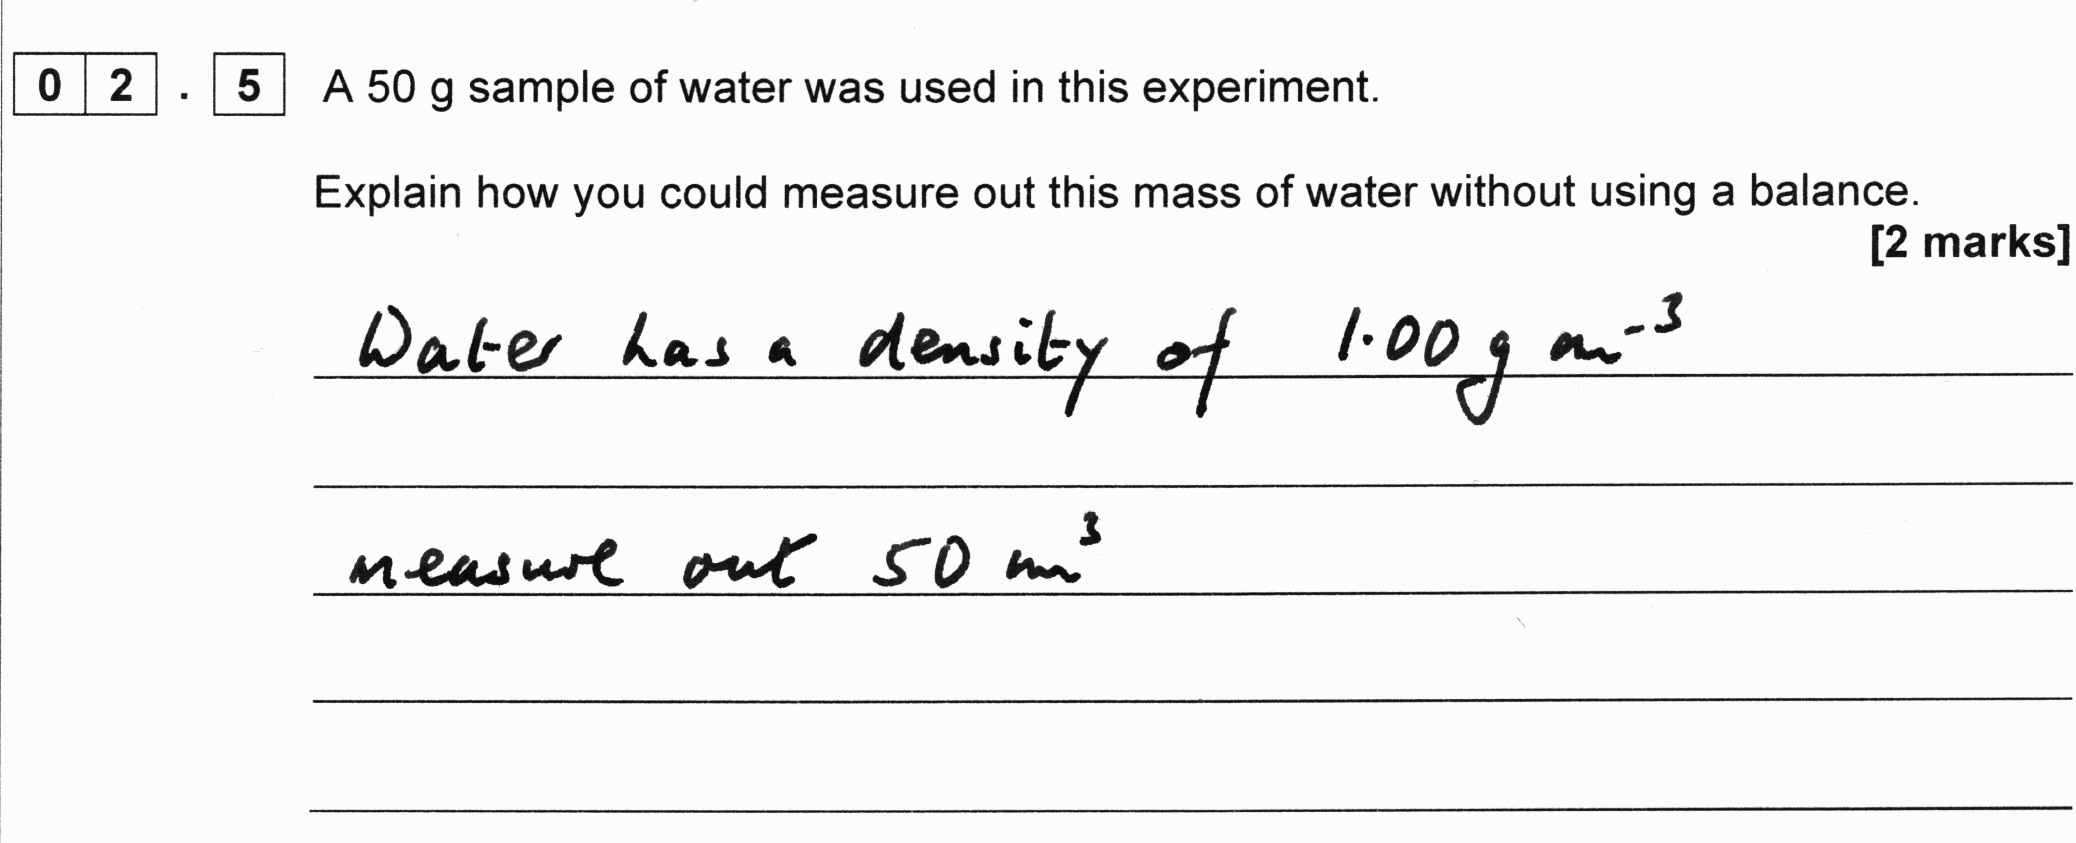 0 2 . 5 A 50 g sample of water was used in this experiment.
Explain how you could measure out this mass of water without using a balance.
[2 marks]
Water has a density of 1.00 g cm⁻³
measure out 50 cm³